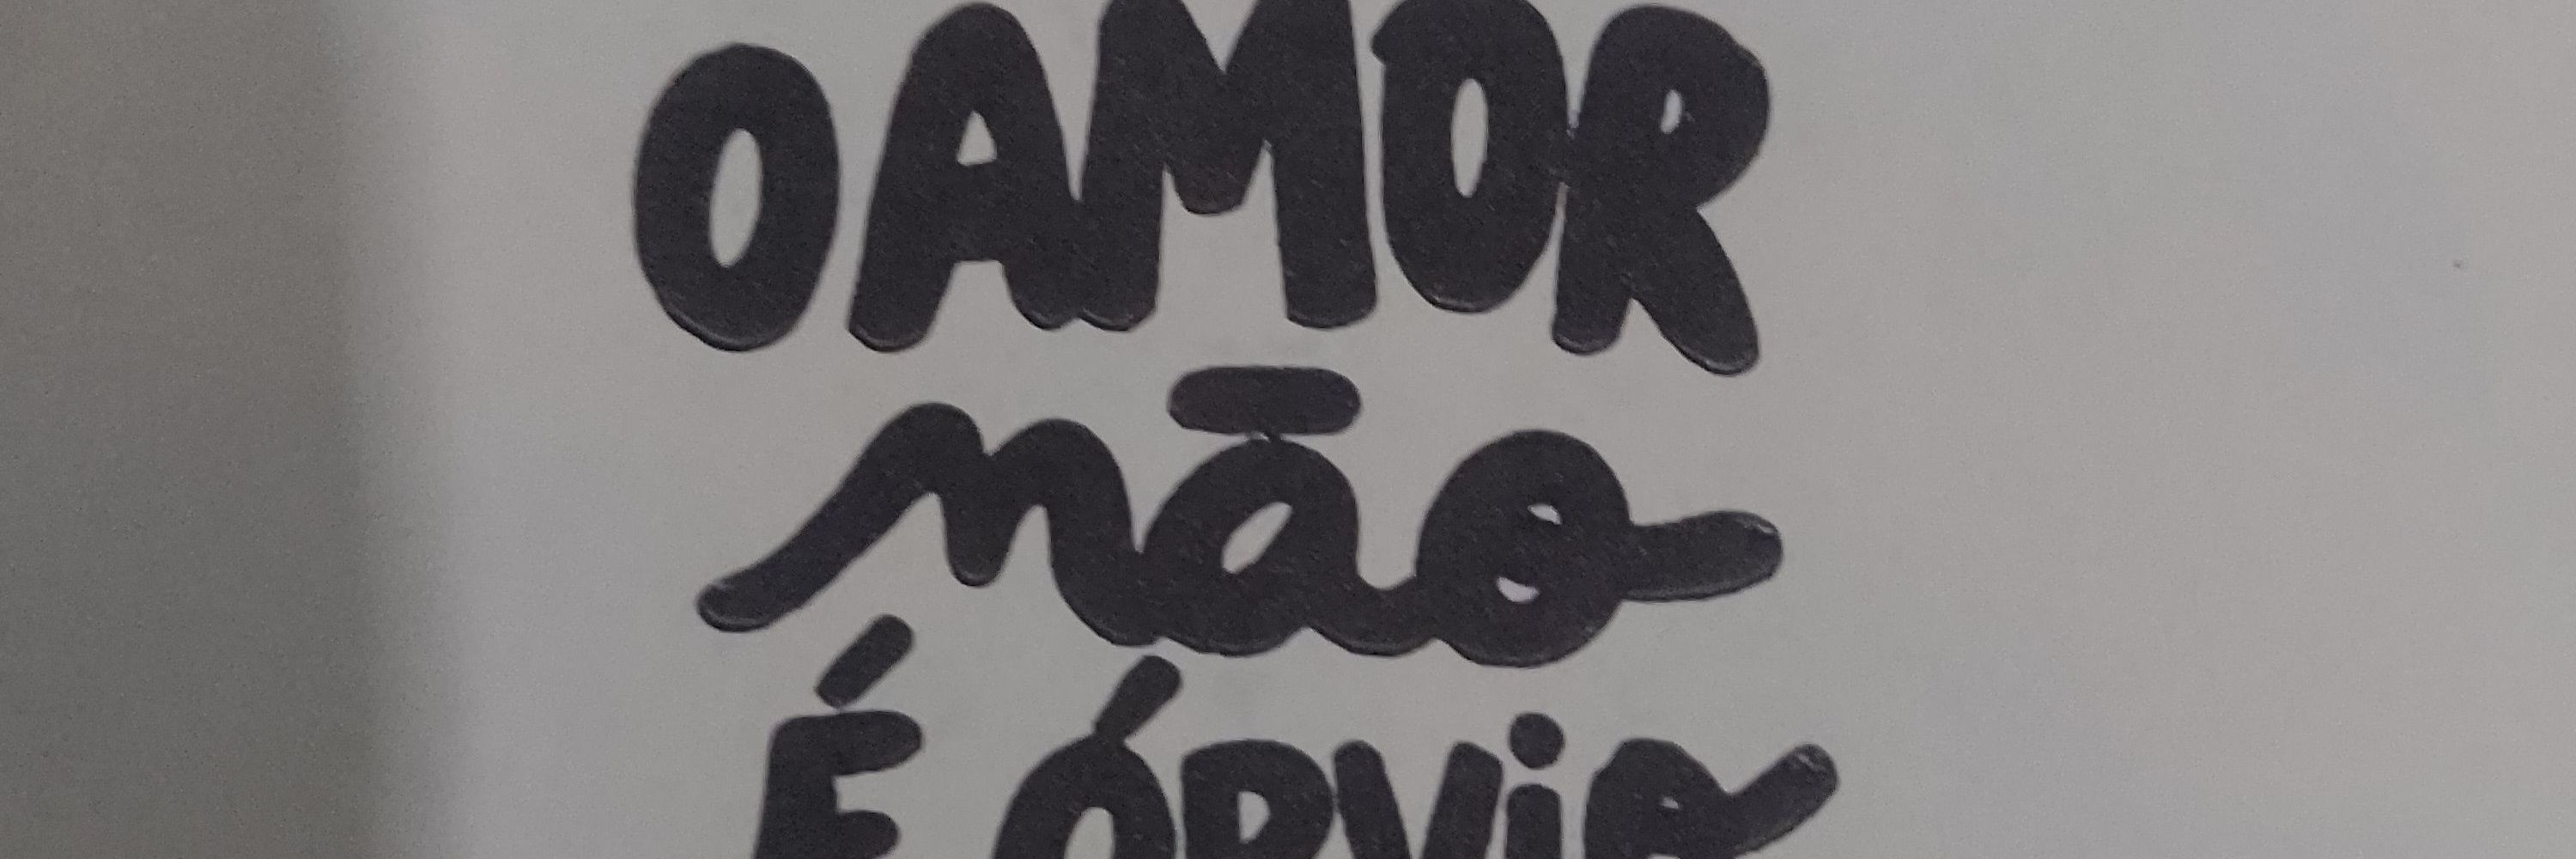 O AMOR
não
É ÓBVIO